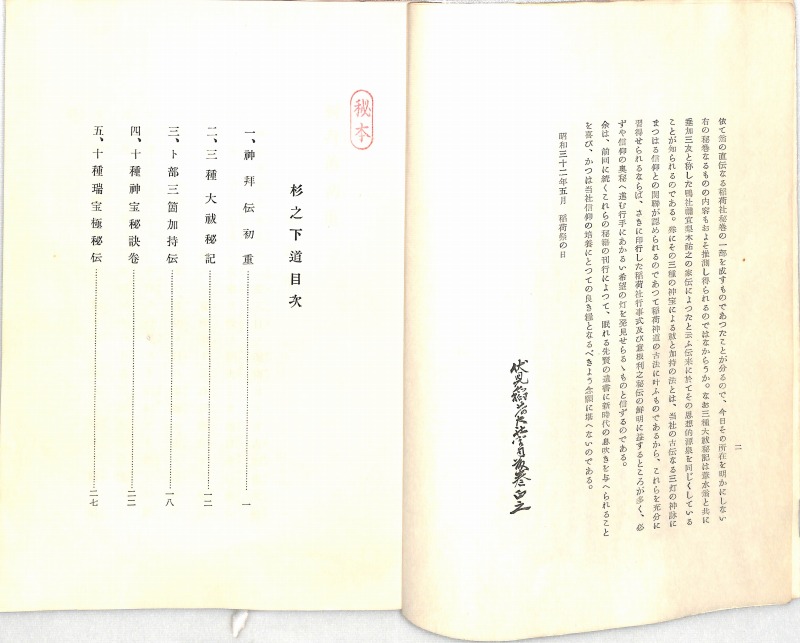 二
依て翁の直伝なる稲荷社秘巻の一部を成すものであつたことが分るので、今日その所在を明かにしない
右の秘巻なるものの内容もおよそ推測し得られるのではなからうか。なお三種大祓秘記は葦水翁と共に
垂加三友と称した鴨社禰宜梨木祐之の家伝によつたと云ふ伝来に於てその思想的源泉を同じくしている
ことが知られるのである。殊にその三種の神宝による祓と加持の法とは、当社の古伝なる三灯の神詠に
まつはる信仰との関聯が認められるのであつて稲荷神道の古法に叶ふものであるから、これらを充分に
習得せられるならば、さきに印行した稲荷社行事式及び意根利之秘伝の鮮明に益するところが多く、必
ずや信仰の奥秘へ進む行手にあかるい希望の灯を発見せらるゝものと信ずるのである。
余は、前回に続くこれらの秘籍の刊行によつて、眠れる先賢の遺書に新時代の息吹きを与へられること
を喜び、かつは当社信仰の培養にとつての良き糧となるべきよう念願に堪へないのである。
昭和三十二年五月 稲荷祭の日
伏見稲荷大社宮司
秘本
杉之下道目次
一、神拜伝初重 一
二、三種大祓秘記 一二
三、卜部三箇加持伝 一八
四、十種神宝秘訣巻 二二
五、十種瑞宝極秘伝 二七